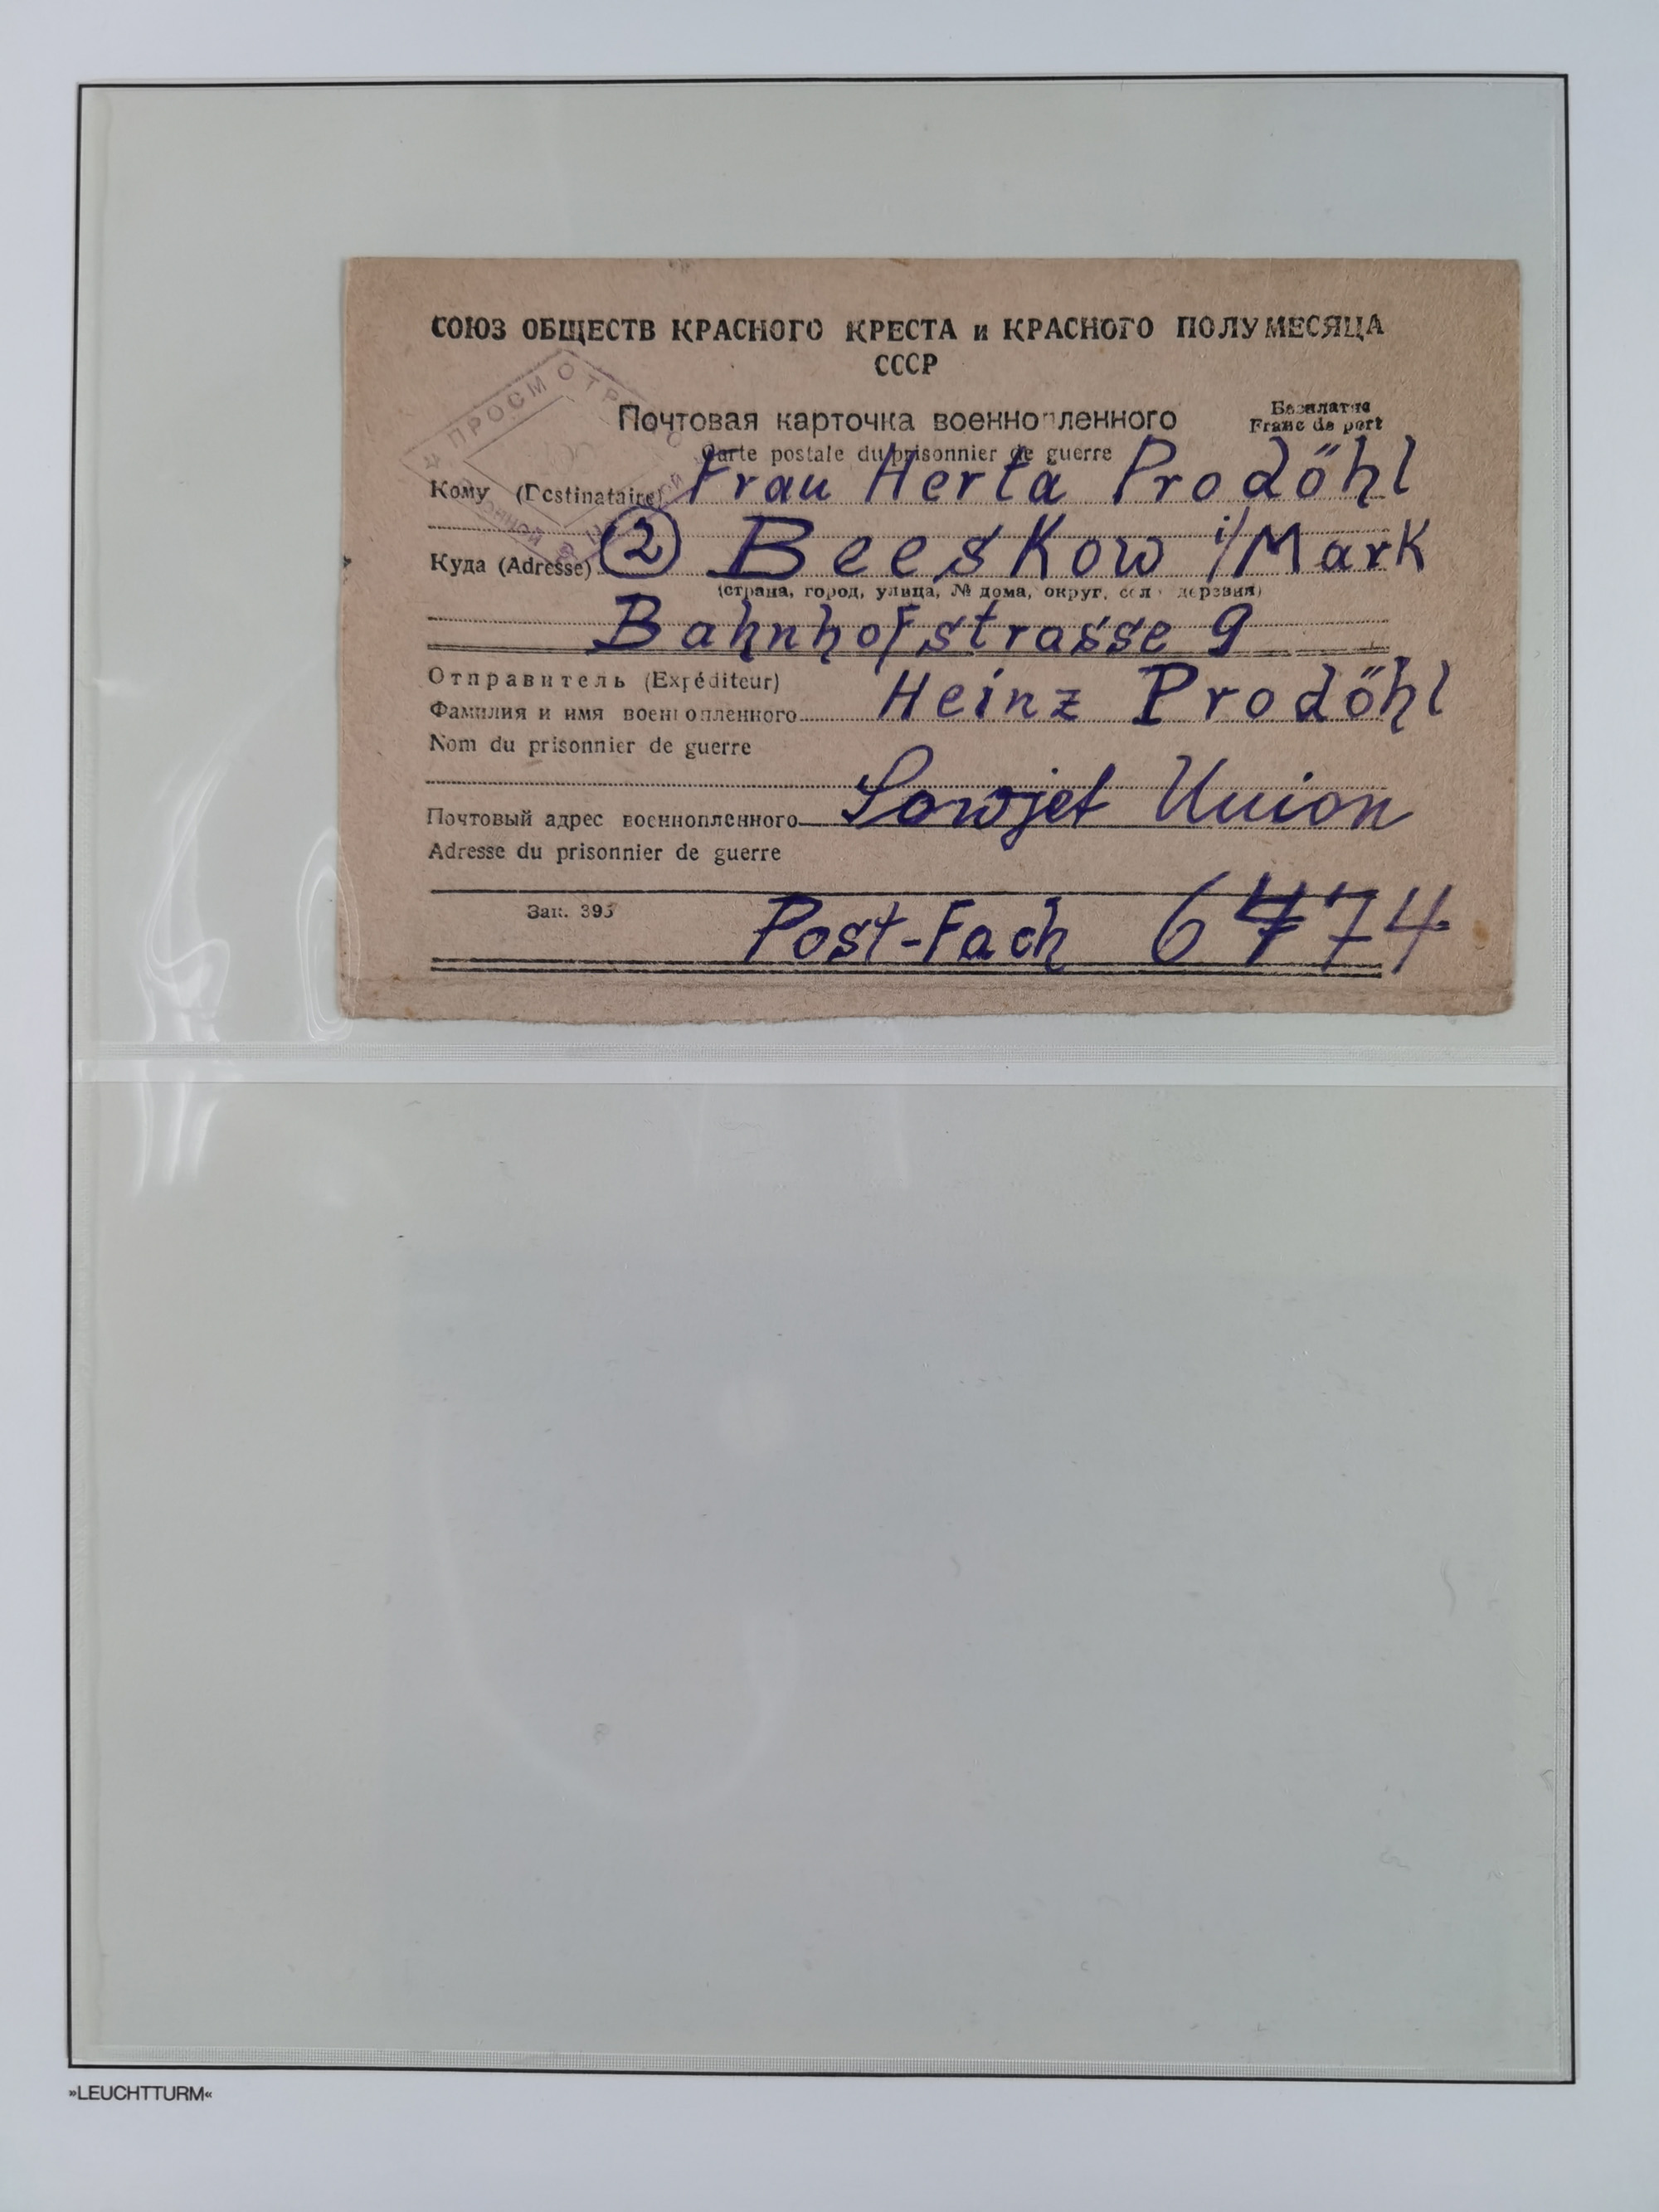 СОЮЗ ОБЩЕСТВ КРАСНОГО КРЕСТА и КРАСНОГО ПОЛУМЕСЯЦА
СССР
ПРОСМОТРЕНО
Почтовая карточка военнопленного
Бесплатно
Franc de port
Carte postale du prisonnier de guerre
Кому (Destinataire) Frau Herta Prodöhl
Куда (Adresse) 2 Beeskow i/Mark
(страна, город, улица, № дома, округ, село, деревня)
Bahnhofstrasse 9
Отправитель (Expéditeur)
Фамилия и имя военнопленного Heinz Prodöhl
Nom du prisonnier de guerre
Почтовый адрес военнопленного Sowjet Union
Adresse du prisonnier de guerre
Зак. 395
Post-Fach
»LEUCHTTURM«